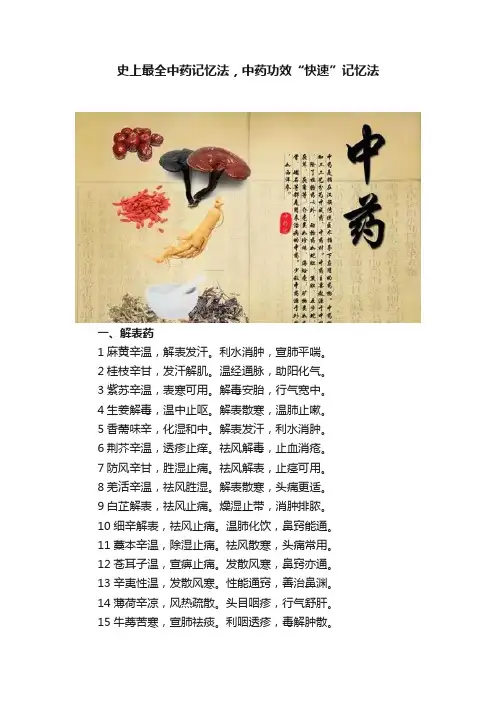 史上最全中药记忆法，中药功效“快速”记忆法
中药
一、解表药
1麻黄辛温，解表发汗。利水消肿，宣肺平喘。
2桂枝辛甘，发汗解肌。温经通脉，助阳化气。
3紫苏辛温，表寒可用。解毒安胎，行气宽中。
4生姜解毒，温中止呕。解表散寒，温肺止嗽。
5香薷味辛，化湿和中。解表发汗，利水消肿。
6荆芥辛温，透疹止痒。祛风解毒，止血消疮。
7防风辛甘，胜湿止痛。祛风解表，止痉可用。
8羌活辛温，祛风胜湿。解表散寒，头痛更适。
9白芷解表，祛风止痛。燥湿止带，消肿排脓。
10细辛解表，祛风止痛。温肺化饮，鼻窍能通。
11藁本辛温，除湿止痛。祛风散寒，头痛常用。
12苍耳子温，宣痹止痛。发散风寒，鼻窍亦通。
13辛夷性温，发散风寒。性能通窍，善治鼻渊。
14薄荷辛凉，风热疏散。头目咽疹，行气舒肝。
15牛蒡苦寒，宣肺祛痰。利咽透疹，毒解肿散。